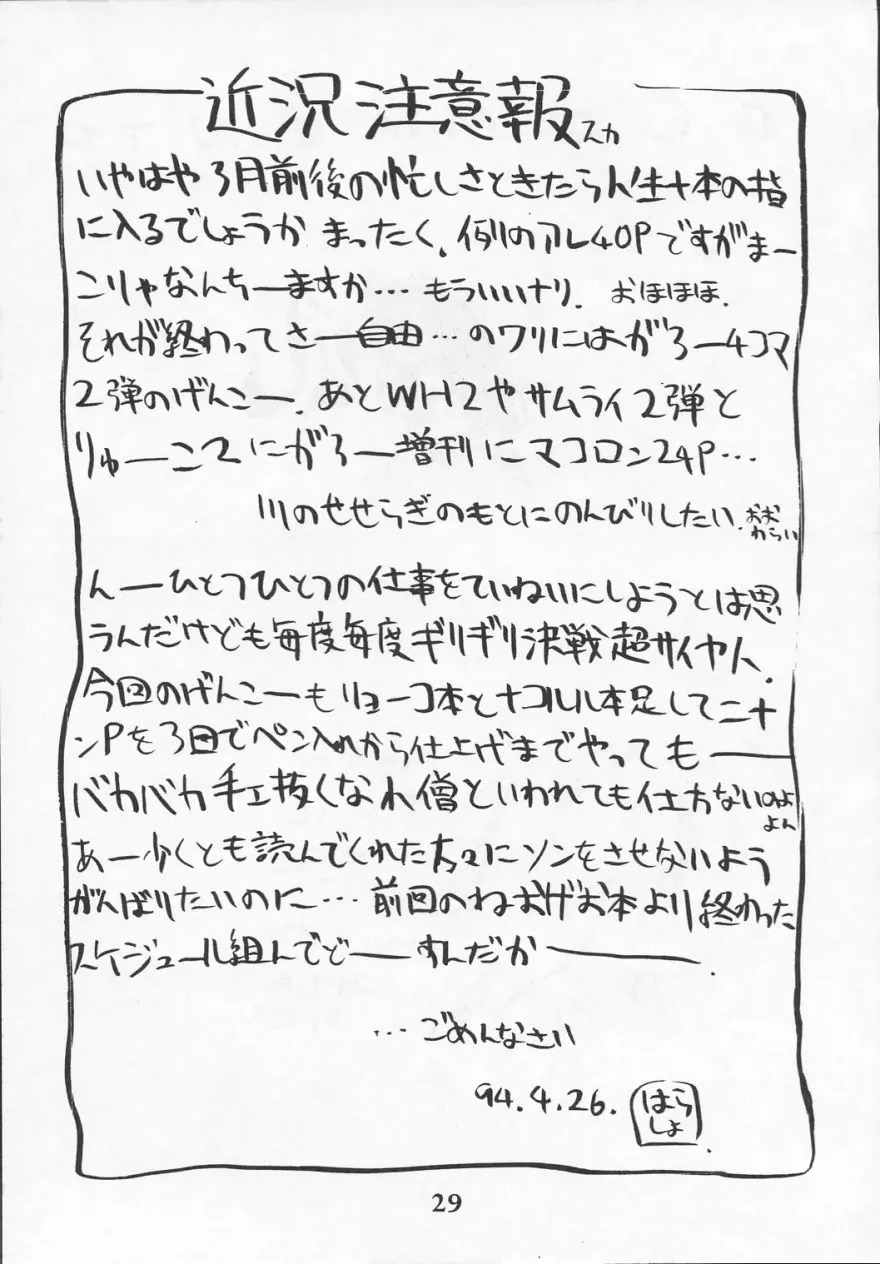 近況注意報スカ
いやはや3月前後の忙しさときたら人生十本の指
に入るでしょうか まったく、例のアレ40Pですがまー
こりゃなんちーますか… もういいナリ. おほほほ.
それが終わってさー自由…のワリにはがろー4コマ
2弾のげんこー. あとWH2やサムライ2弾と
りゅーこ2にがろー増刊にマコロン24P…
川のせせらぎのもとにのんびりしたい. おおわらい
んーひとつひとつの仕事をていねいにしようとは思
うんだけども毎度毎度ギリギリ決戦超サイヤ人.
今回のげんこーもリョーコ本とナコルル本足して二十
ンPを3日でペン入れから仕上げまでやってもー
バカバカ手ェ抜くなれ僧といわれても仕方ないのよよん
あー少くとも読んでくれた方々にソンをさせないよう
がんばりたいのに… 前回のねおげお本より終わった
スケジュール組んでどーすんだかー.
…ごめんなさい
94.4.26. はらしょ.
29